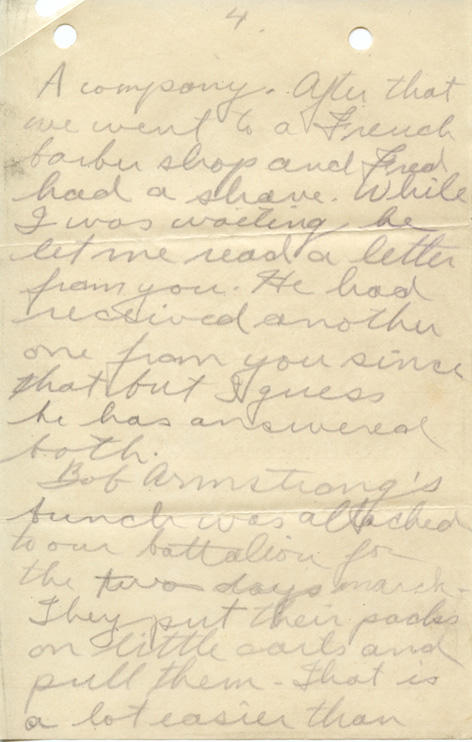 4.
A company. After that
we went to a French
barber shop and Fred
had a shave. While
I was waiting he
let me read a letter
from you. He had
received another
one from you since
that but I guess
he has answered
both.
Bob Armstrong's
bunch was attached
to our battalion for
the two days march.
They put their packs
on little carts and
pull them - That is
a lot easier than